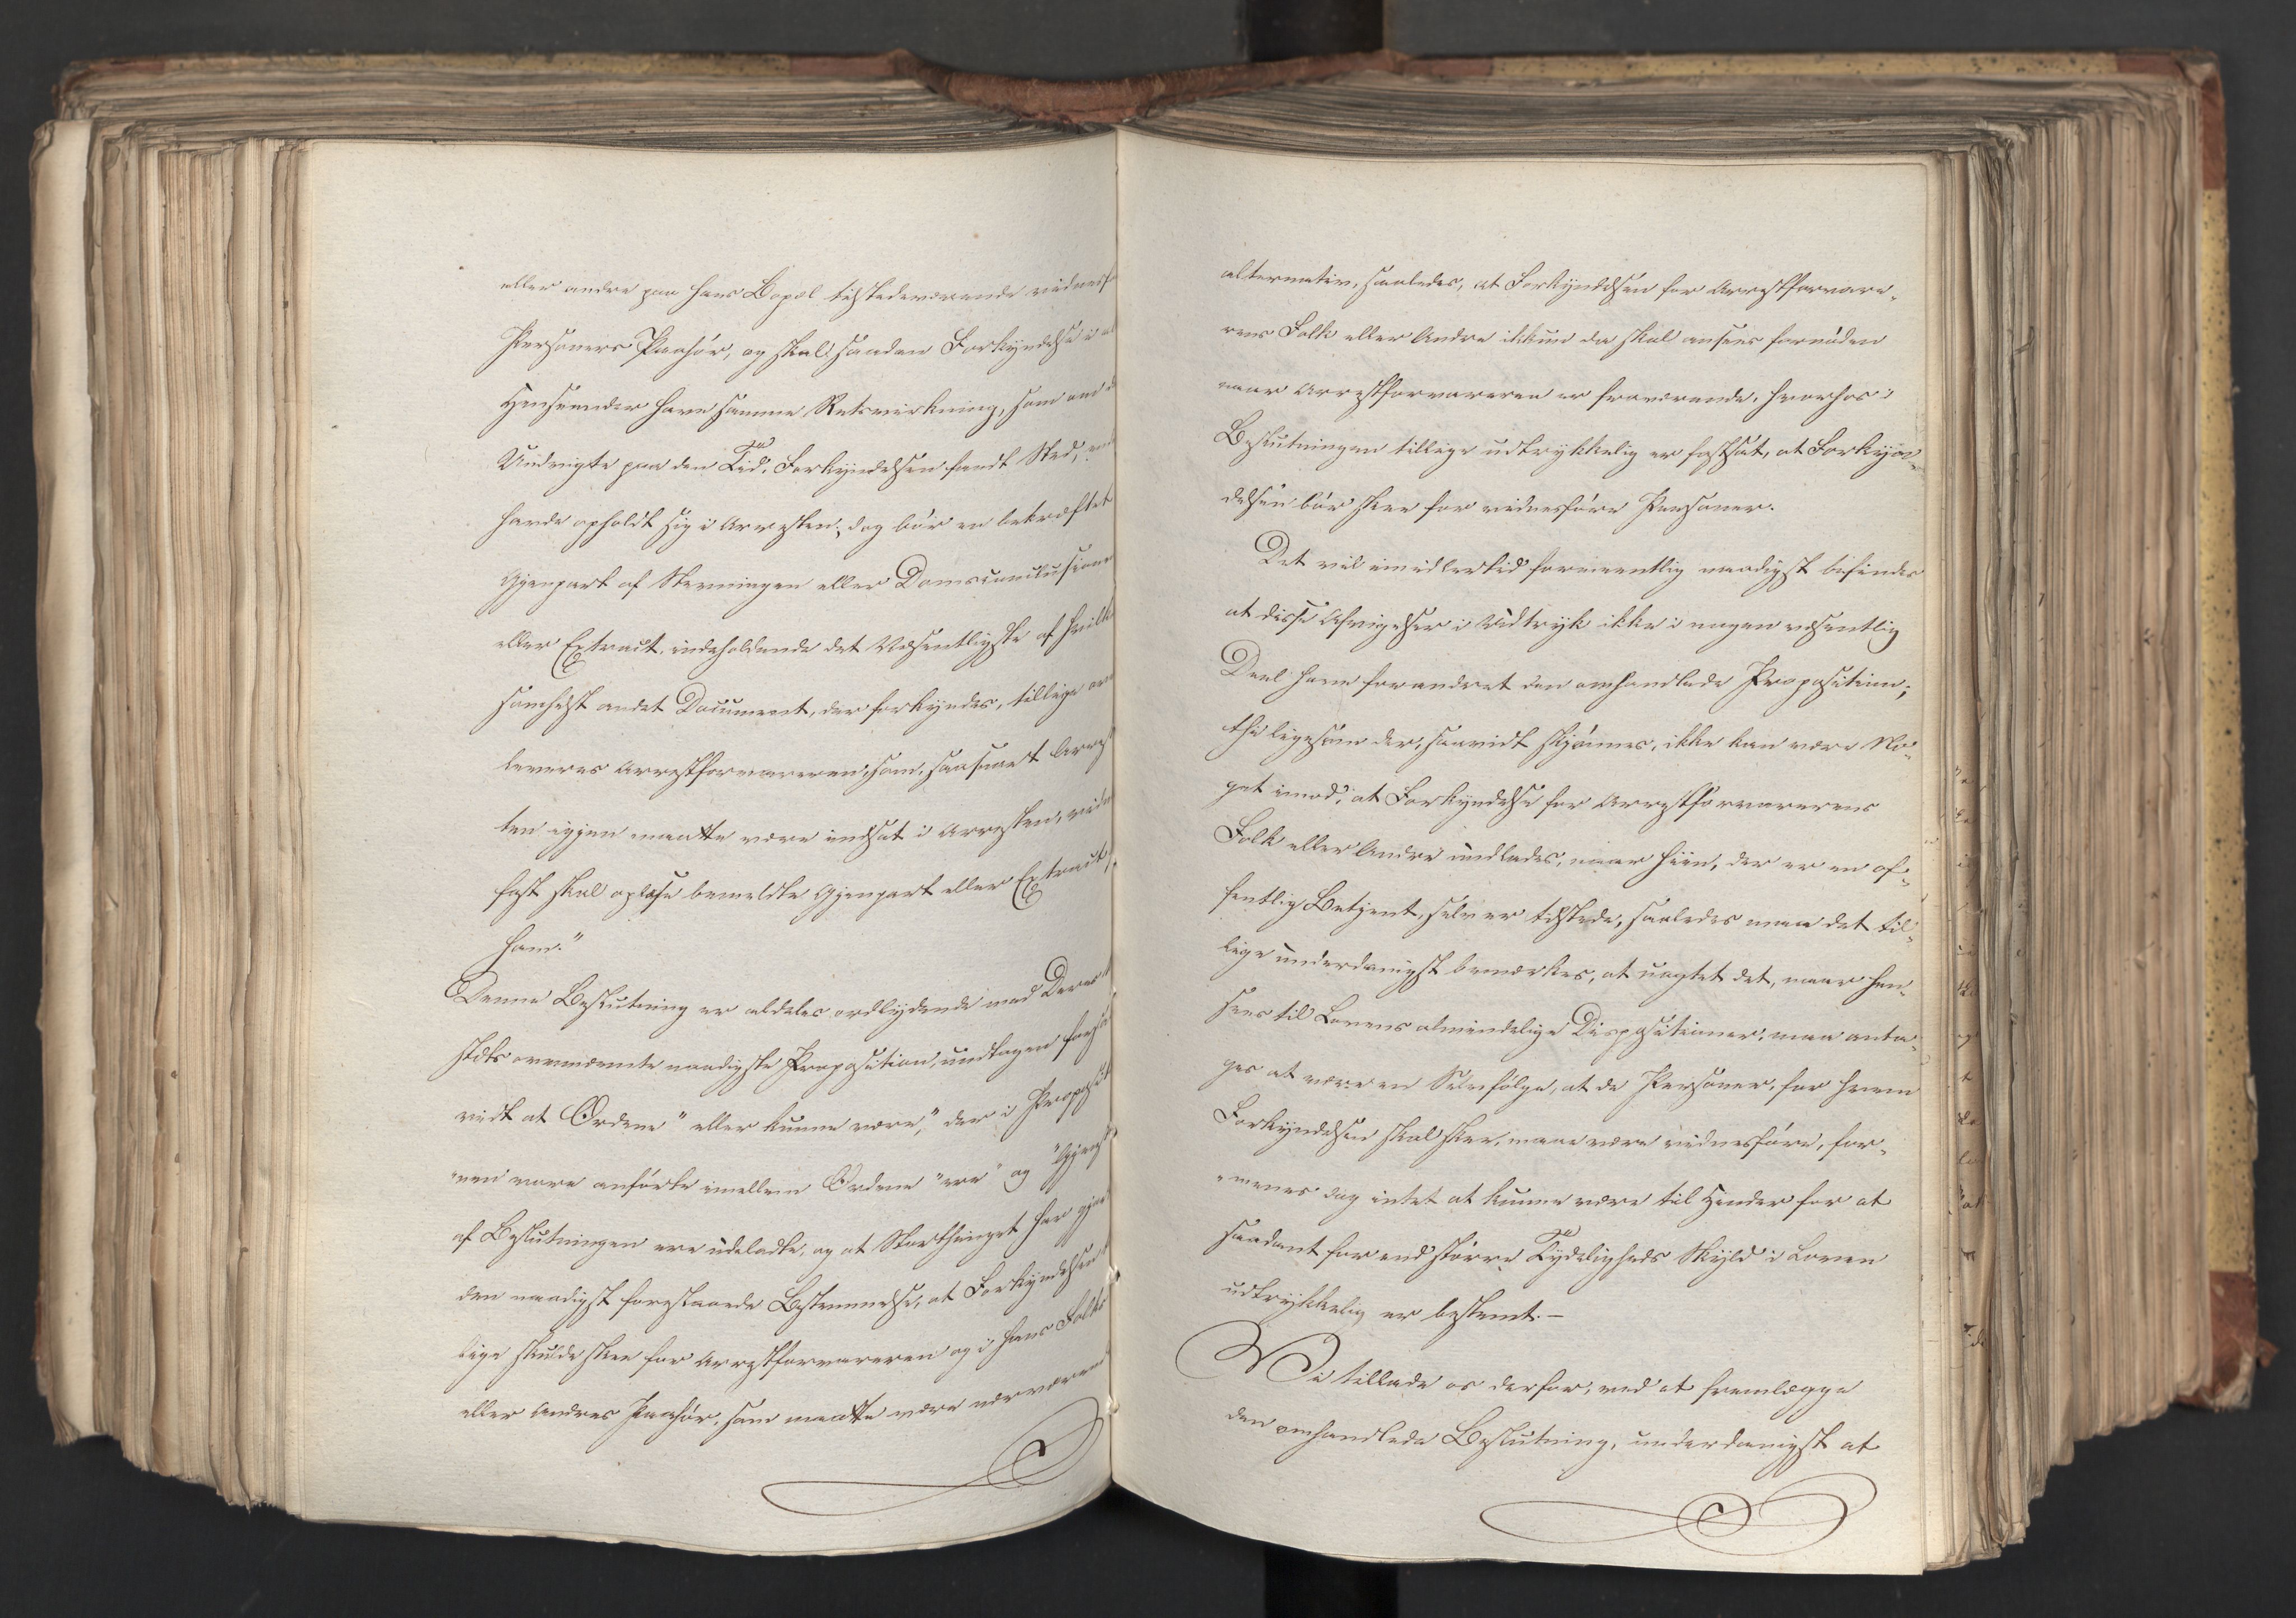 eller andre paa hans Bopæl tilstedeværende vidnesf
Personers Paahør, og skal saadan Forkyndelse i al
Henseender have samme Retsvirkning, som om d
Undvigte paa den Tid, Forkyndelsen fandt Sted,
havde opholdt sig i Arresten; dog bør en bekræftet
Gjenpart af Stævningen eller Domsconclusionen
eller Extract, indeholdende det Væsentligste af hvilk
somhelst andet Document, der forkyndes, tillige
leveres Arrestforvareren, som, saasnart Arres
ten igjen maatte være indsat i Arresten,
fast skal oplæse bemeldte Gjenpart eller Extract
ham."
Denne Beslutning er aldeles ordlydende med Deres
ovennævnte naadigste Proposition, undtagen forsaa
vidt at Ordene "eller kunne være," der i Proposit
nen vare anførte imellem Ordene "ere" og "Gjenst
af Beslutningen ere udeladte, og at Storthinget har gjort
den naadigst foreslaaede Bestemmelse, at Forkyndelsen
lige skulde skee for Arrestforvareren og i hans Folks
eller Andres Paahør, som maatte være nærværen
alternativ, saaledes, at Forkyndelsen for Arrestforvare-
rens Folk eller Andre ikkun da skal ansees fornøden
naar Arrestforvareren er fraværende, hvorhos i
Beslutningen tillige udtrykkelig er fastsat, at Forkyn-
delsen bør skee for vidnesføre Personer.
Det vil imidlertid formeentlig naadigst befindes
at disse Afvigelser i Udtryk ikke i nogen væsentlig
Deel have forandret den omhandlede Proposition;
thi ligesom der, saavidt skjønnes, ikke kan være No-
get imod, at Forkyndelse for Arrestforvarerens
Folk eller Andre undlades, naar hiin, der er en of-
fentlig Betjent, selv er tilstede, saaledes maa det til-
lige underdanigst bemærkes, at uagtet det, naar hen-
sees til Lovens almindelige Dispositioner, maa anta-
ges at være en Selvfølge, at de Personer, for hvem
Forkyndelsen skal skee, maae være vidnesføre, for-
menes dog intet at kunne være til Hinder for at
saadant for end større Tydeligheds Skyld i Loven
udtrykkelig er bestemt.—
Vi tillade os derfor, ved at fremlægge
den omhandlede Beslutning, underdanigst at